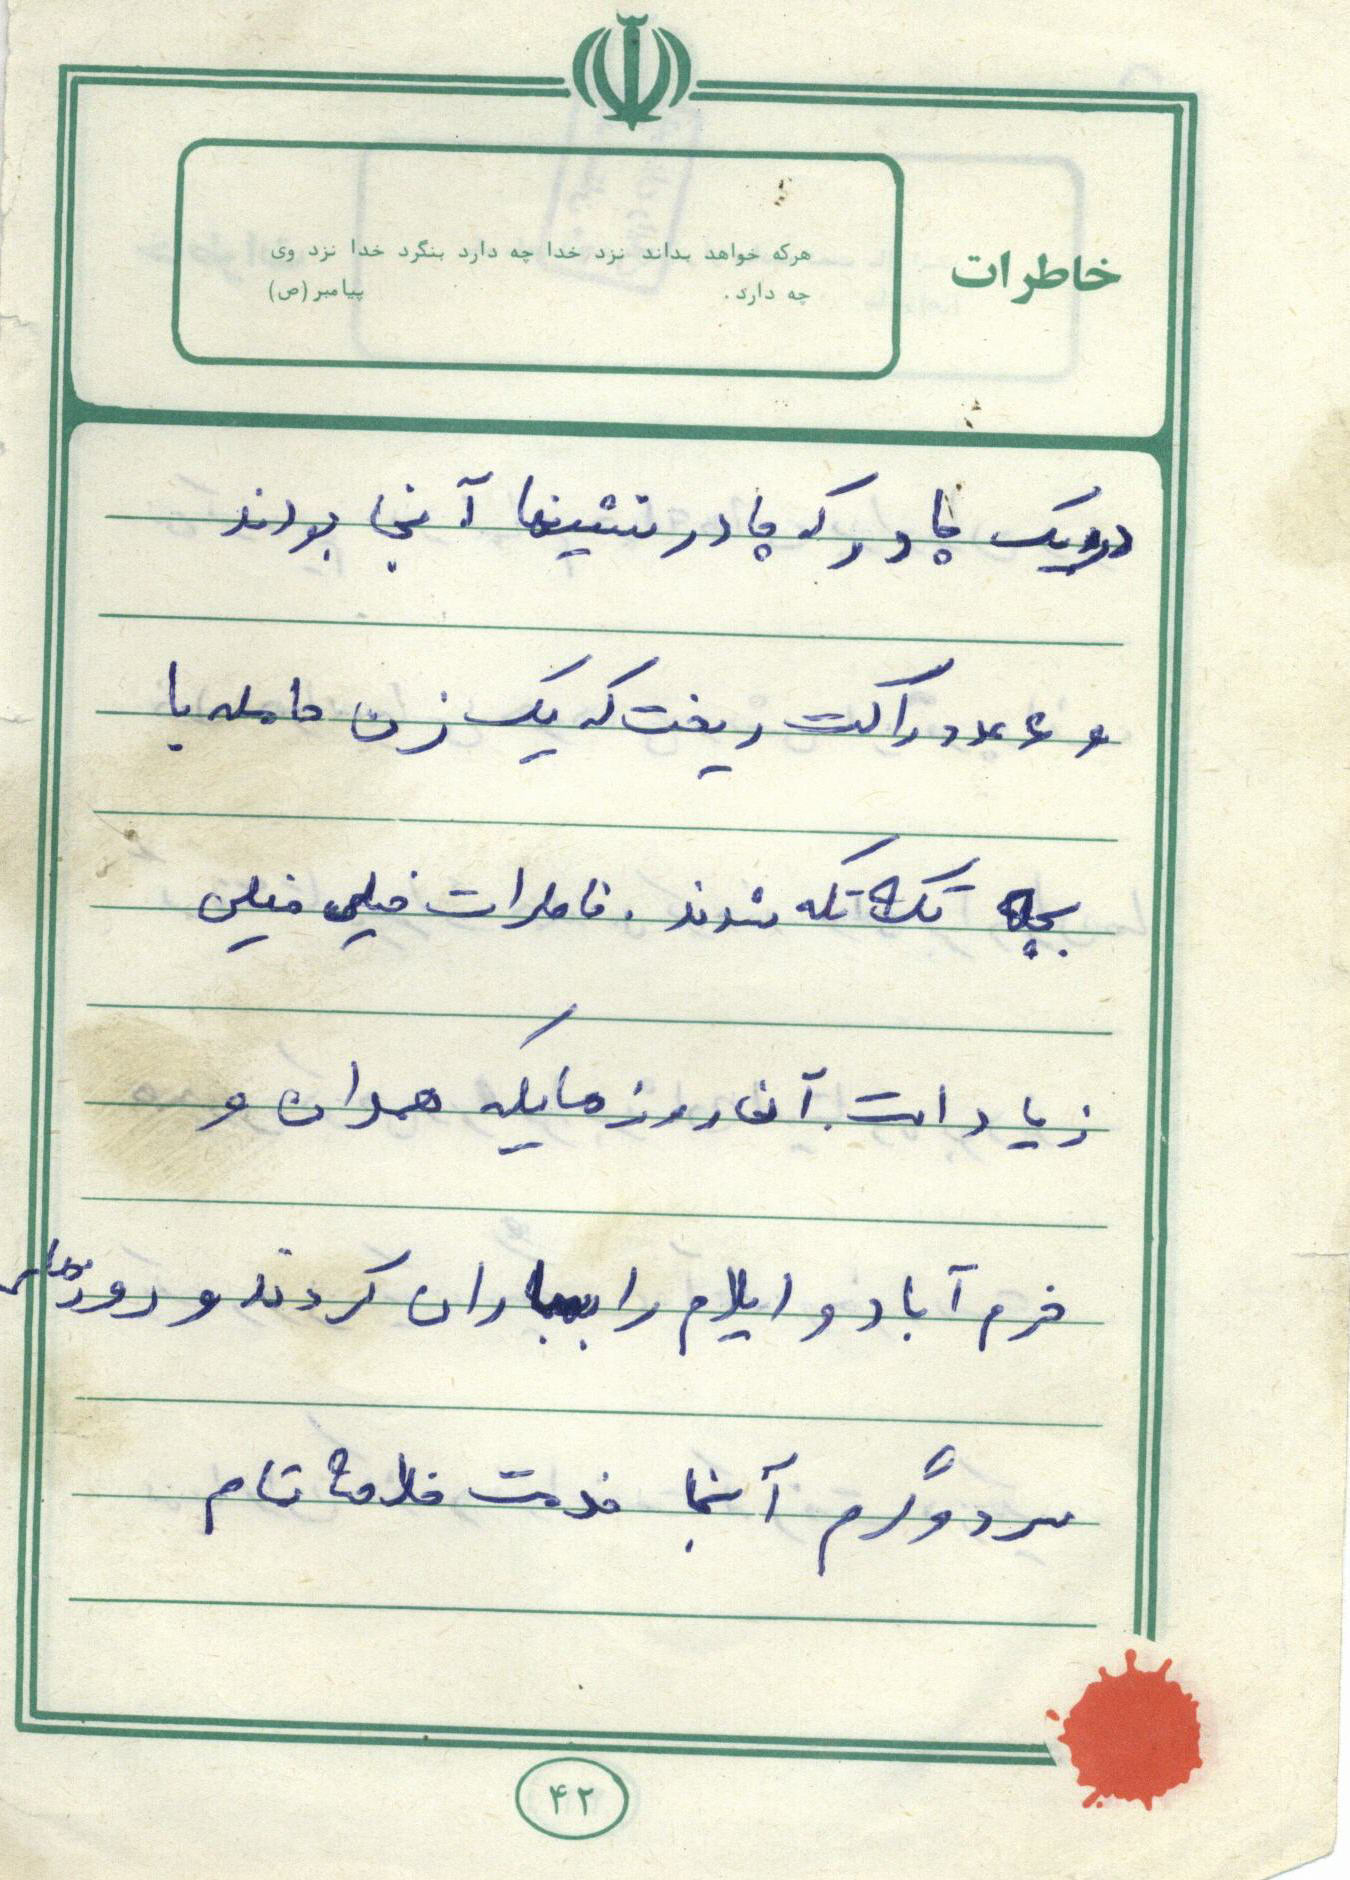 خاطرات
هرکه خواهد بداند نزد خدا چه دارد بنگرد خدا نزد وی
چه دارد. پیامبر (ص)
در یک چادر که چادر نشینها آنجا بودند
و راکت ریخت که یک زن حامله با
بچه تکه تکه شدند. خاطرات خیلی خیلی
زیاد است. آن روزهایکه همدان و
خرم آباد و ایلام را بمباران کردند و روزهای
سرد و گرم آنجا خدمت خلاصه تمام
۴۲